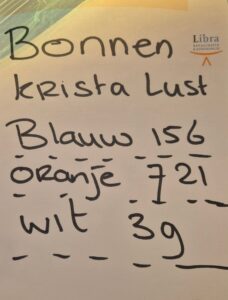 Bonnen
Libra
Krista Lust
Blauw 156
oranje 721
wit 39